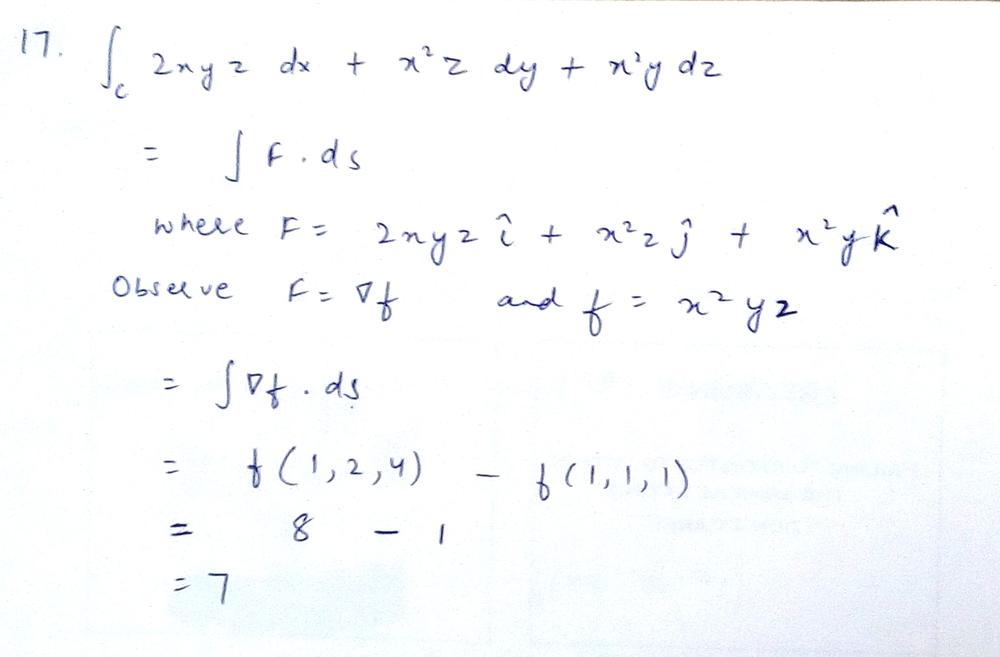 17. ∫_c 2xyz dx + x²z dy + x²y dz
= ∫ F . ds
where F = 2xyz î + x²z ĵ + x²y k̂
Observe F = ∇f and f = x²yz
= ∫ ∇f . ds
= f(1,2,4) - f(1,1,1)
= 8 - 1
= 7